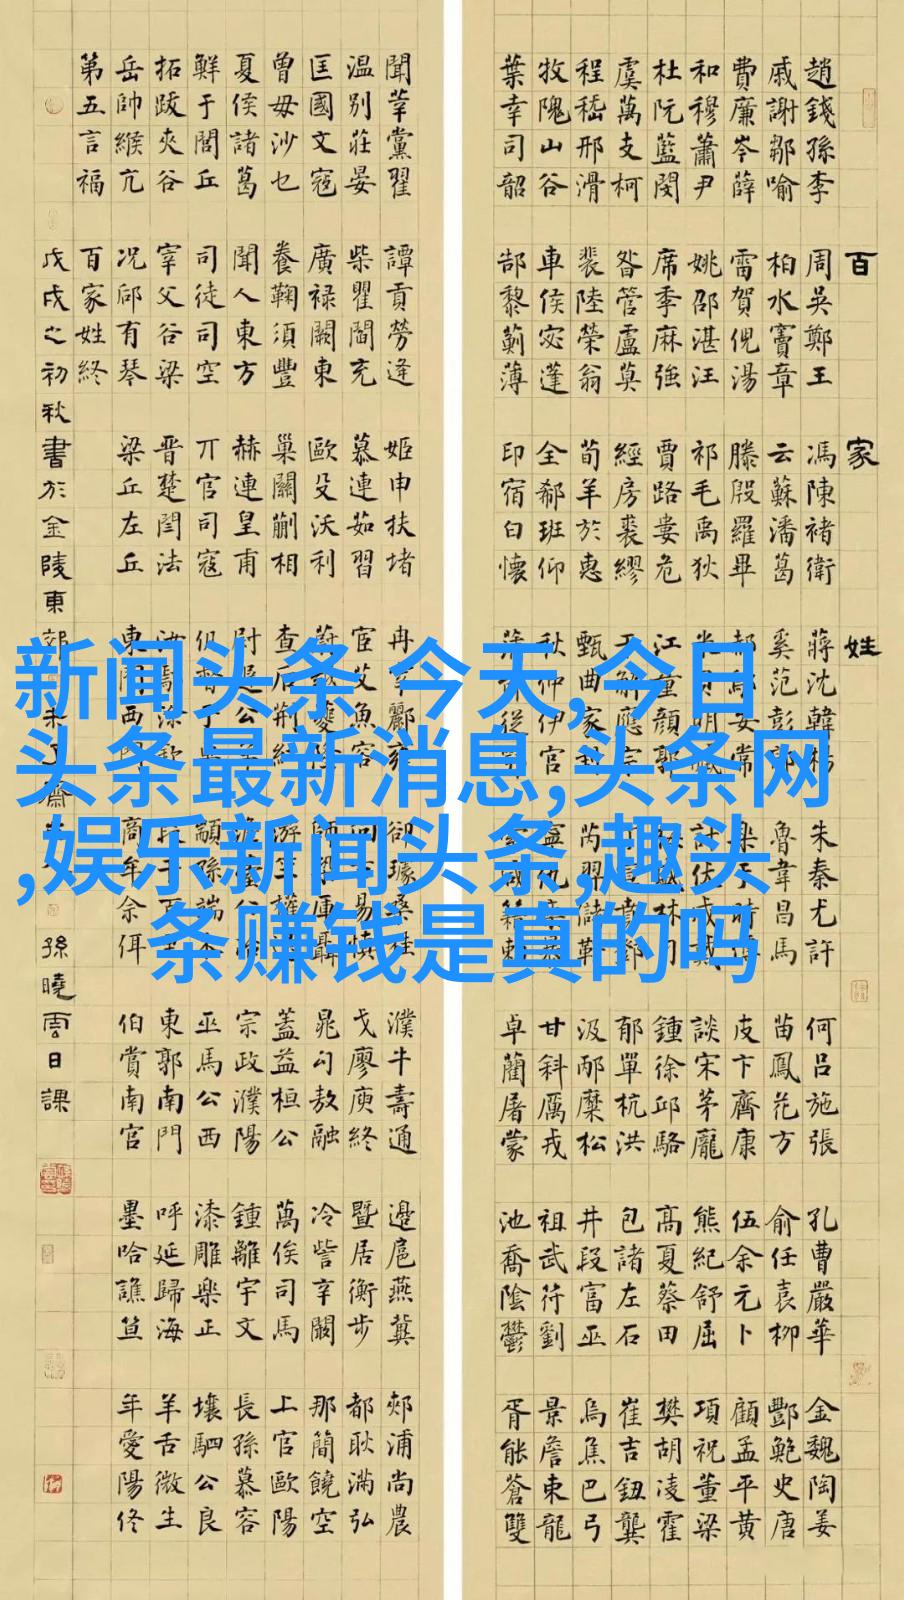 百家姓
趙錢孫李 周吳鄭王 馮陳褚衛 蔣沈韓楊 朱秦尤許 何呂施張 孔曹嚴華 金魏陶姜
戚謝鄒喻 柏水竇章 云蘇潘葛 奚范彭郎 魯韋昌馬 苗鳳花方 俞任袁柳 酆鮑史唐
費廉岑薛 雷賀倪湯 滕殷羅畢 郝鄔安常 樂于時傅 皮卞齊康 伍余元卜 顧孟平黃
和穆蕭尹 姚邵湛汪 祁毛禹狄 米貝明臧 計伏成戴 談宋茅龐 熊紀舒屈 項祝董梁
杜阮藍閔 席季麻強 賈路婁危 江童顏郭 林刁 鍾徐邱駱 高夏蔡田 樊胡凌霍
虞萬支柯 昝管盧莫 經房裘繆 干解應宗 鄧 郁單杭洪 包諸左石 崔吉鈕龔
程嵇邢滑 裴陸榮翁 荀羊於惠 甄曲家封 芮羿儲靳 汲邴糜松 井段富巫 烏焦巴弓
牧隗山谷 車侯宓蓬 全郗班仰 秋仲伊宮 寧仇 甘斜厲戎 祖武符劉 景詹束龍
葉幸司韶 郜黎薊薄 印宿白懷 從 咸籍賴 卓藺屠蒙 池喬陰鬱 胥能蒼雙
聞莘黨翟 譚貢勞逄 姬申扶堵 冉宰酈雍 卻璩桑桂 濮牛壽通 邊扈燕冀 郟浦尚農
温別莊晏 柴瞿閻充 慕連茹習 宦艾魚容 向古易慎 戈廖庾終 暨居衡步 都耿滿弘
匡國文寇 廣祿闕東 歐殳沃利 蔚越夔隆 師鞏庫聶 晁勾敖融 冷訾辛闞 那簡饒空
曾毋沙乜 養鞠須豐 巢關蒯相 查后荊紅 游竺權 蓋益桓公 萬俟司馬 上官歐陽
夏侯諸葛 聞人東方 赫連皇甫 尉遲公羊 澹臺公冶 宗政濮陽 鍾離宇文 長孫慕容
鮮于閭丘 司徒司空 丌官司寇 仉督子車 顓孫端木 巫馬公西 漆雕樂正 壤駟公良
拓跋夾谷 宰父谷梁 晉楚閆法 汝鄢涂欽 段干百里 東郭南門 呼延歸海 羊舌微生
岳帥緱亢 況郈有琴 梁丘左丘 東門西門 商牟佘佴 伯賞南宮 墨哈譙笪 年愛陽佟
第五言福 百家姓終
戊戌之初秋書於金陵東郊 齋 孫曉雲日課
新闻头条 今天,今日
头条最新消息,头条网
,娱乐新闻头条,趣头
条赚钱是真的吗